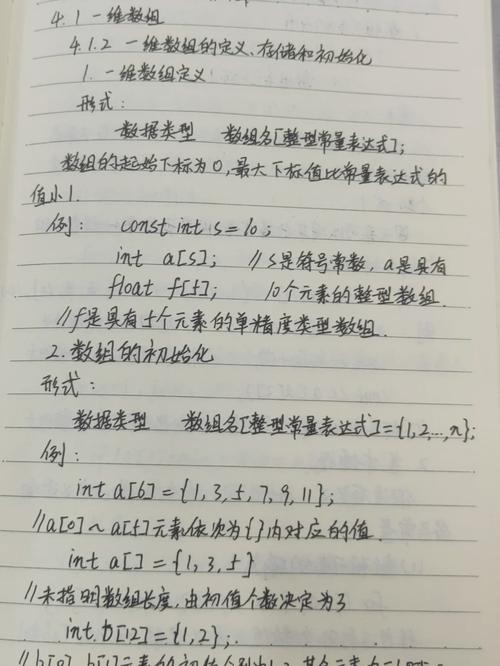 4.1 一维数组
4.1.2 一维数组的定义、存储和初始化
1. 一维数组定义
形式：
数据类型 数组名[整型常量表达式];
数组的起始下标为0,最大下标值比常量表达式的
值小1.
例： const int s=10;
int a[s]; //s是符号常数, a是具有
float f[5]; 10个元素的整型数组.
//f是具有5个元素的单精度类型数组.
2. 数组的初始化
形式：
数据类型 数组名[整型常量表达式]={1,2,…,n};
例：
int a[6]={1,3,5,7,9,11};
//a[0]~a[5]元素依次为{}内对应的值.
int a[]={1,3,5}
//未指明数组长度,由初值个数决定为3
int b[12]={1,2};
//b[0], b[1]元素的初值